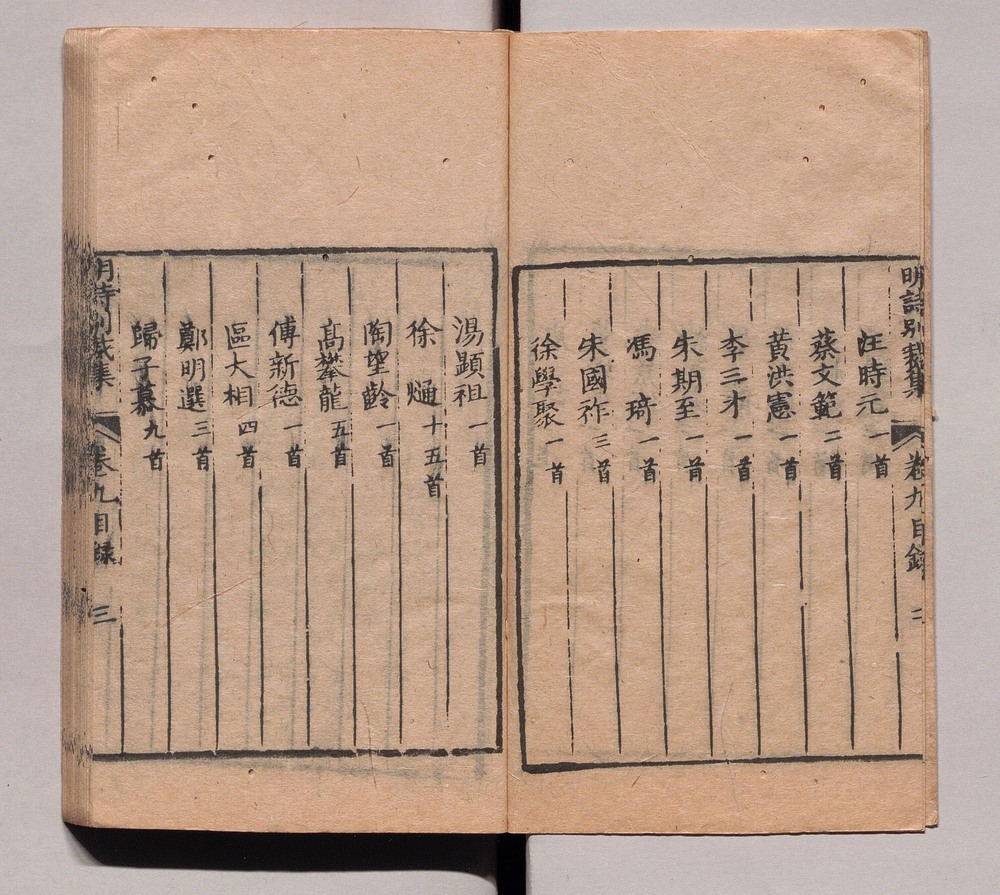 明詩別裁集 卷九目錄 二
汪時元一首
蔡文範二首
黃洪憲一首
李三才一首
朱期至一首
馮琦一首
朱國祚三首
徐學聚一首
湯顯祖一首
徐𤊹十五首
陶望齡一首
高攀龍五首
傅新德一首
區大相四首
鄭明選三首
歸子慕九首
明詩別裁集 卷九目錄 三